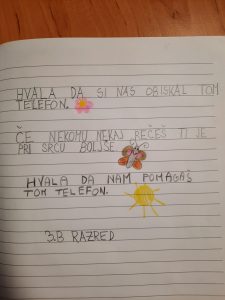 HVALA DA SI NAS OBISKAL TOM
TELEFON.
ČE NEKOMU NEKAJ REČEŠ TI JE
PRI SRCU BOLJŠE.
HVALA DA NAM POMAGAŠ
TOM TELEFON.
3.B RAZRED